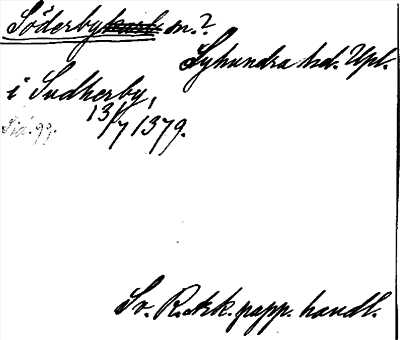 Söderbykarl. m.?
Lyhundra hd. Upl.
i Sudherby,
13/7 1379.
Sid. 99.
Sv. R. ark. papp. handl.